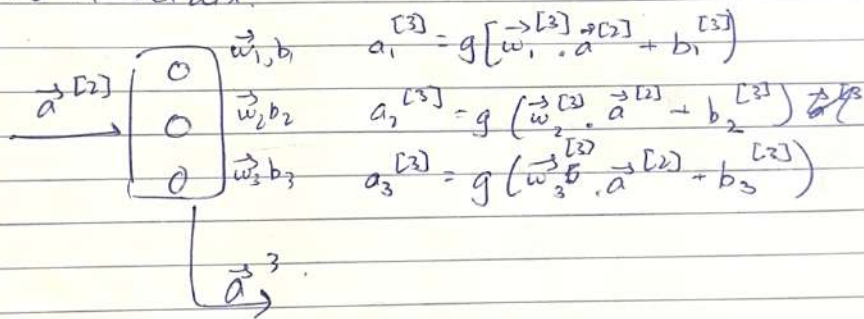 w⃗₁, b₁ a₁^[3] = g[w⃗₁^[3] . a⃗^[2] + b₁^[3])
a⃗^[2]
w⃗₂ b₂ a₂^[3] = g(w⃗₂^[3] . a⃗^[2] + b₂^[3])
w⃗₃ b₃ a₃^[3] = g(w⃗₃^[3] . a⃗^[2] + b₃^[3])
a⃗³